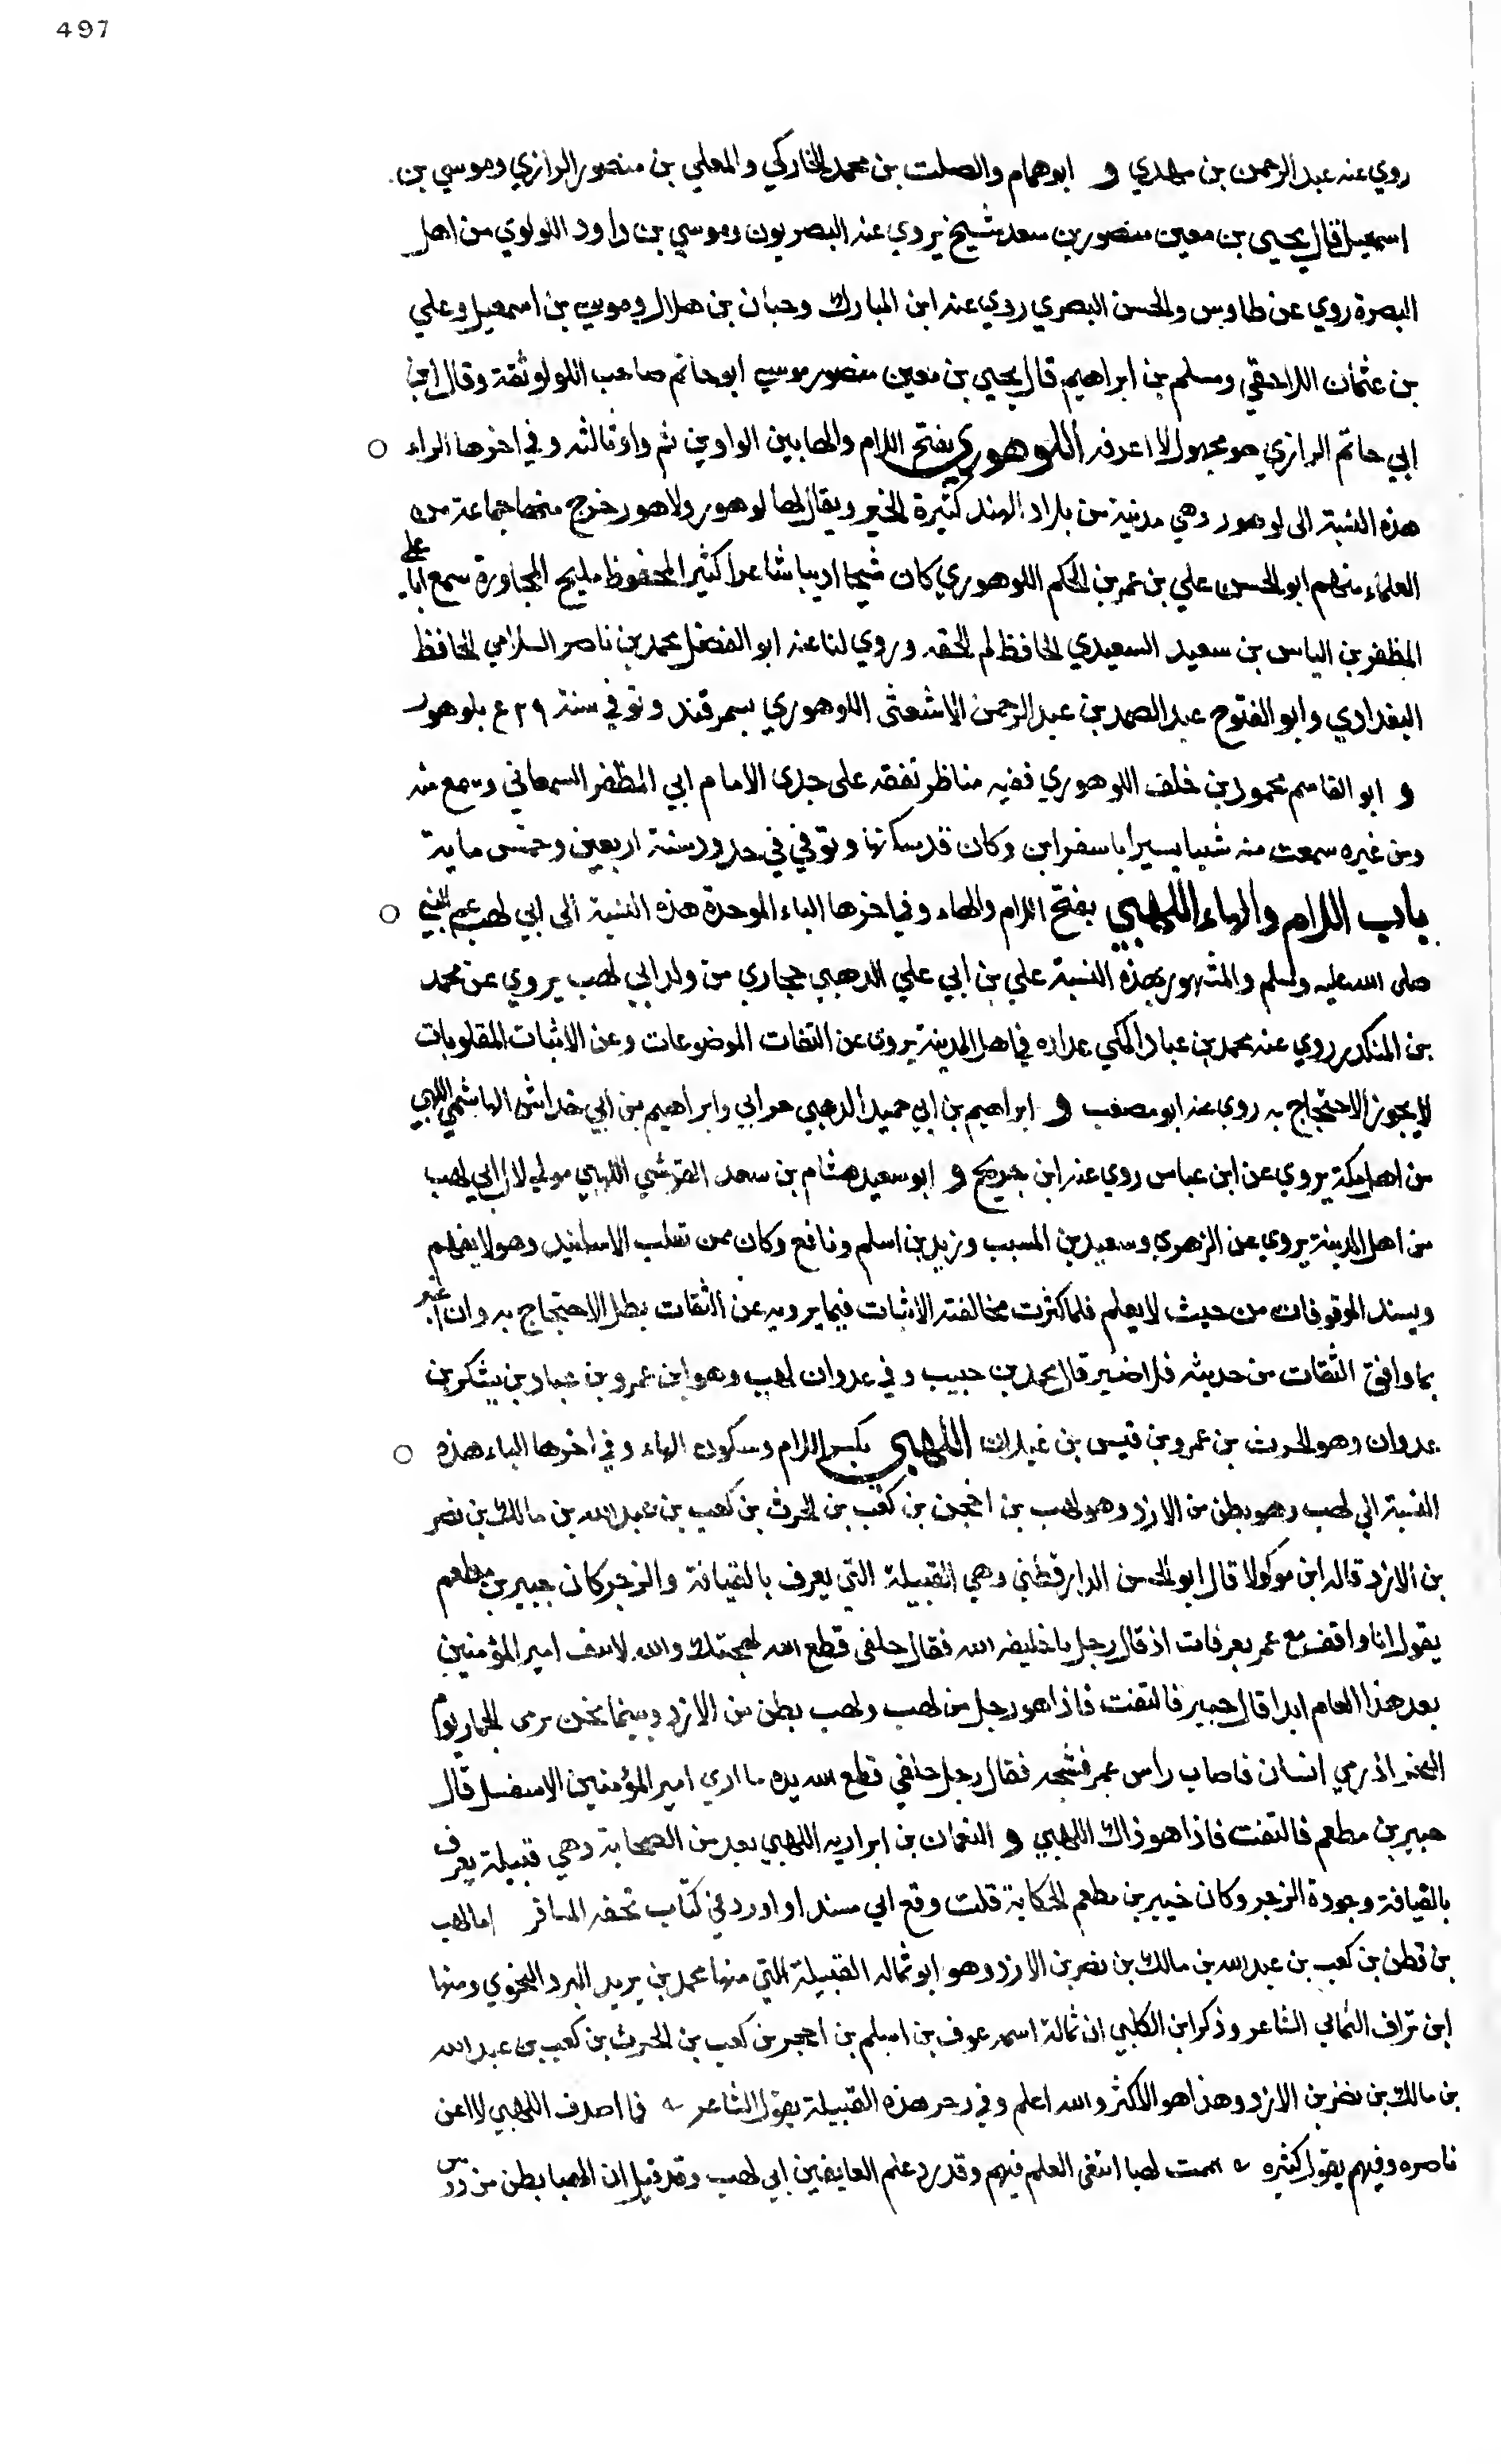 497
روي عنه عبد الرحمن بن مهدي و ابوهمام والصلت بن محمد الخاركي والمعلي بن منصور الرازي وموسي بن
اسمعيل قال يحيي بن معين منصور بن سعد شيخ يروي عنه البصريون وموسي بن داود اللولوي من اهل
البصرة روي عن طاوس والحسن البصري روي عنه ابن المبارك وحبان بن هلال وموسي بن اسمعيل وعلي
بن عثمان اللاحقي ومسلم بن ابراهيم قال يحيي بن معين منصور موسي ابو حاتم صاحب اللولو ثقة وقال ابن
ابي حاتم الرازي هو مجهول لا اعرفه اللوهوري بفتح اللام والها بين الواوين ثم واو ثالثه وفي اخرها الراء
هذه النسبة الى لوهور وهي مدينة من بلاد الهند كثيرة الخير ويقال لها لوهور ولاهور خرج منها جماعة من
العلماء منهم ابو الحسن علي بن عمر بن الحكم اللوهوري كان شيخا اديبا شاعرا كثير المحفوظ مليح المجاورة سمع ابا علي
المظفر بن الياس بن سعيد السعيدي الحافظ لم الحقه وروي لنا عنه ابو الفضل محمد بن ناصر السلامي الحافظ
البغدادي وابو الفتوح عبد الصمد بن عبد الرحمن الاشعثى اللوهوري بسمرقند وتوفي سنة ٤٢٩ بلوهور
و ابو القاسم محمود بن خلف اللوهوري فقيه مناظر تفقه على جدى الامام ابي المظفر السمعاني وسمع منه
ومن غيره سمعت منه شيا يسيرا باسفراين وكان قد سكنها وتوفي في حدود سنة اربعين وخمس ماية
باب اللام والهاء اللهبي بفتح اللام والهاء وفي اخرها الباء الموحدة هذه النسبة الى ابي لهب عم النبي
صلى الله عليه وسلم والمشهور بهذه النسبة علي بن ابي علي اللهبي حجازي من ولد ابي لهب يروي عن محمد
بن المنكدر روي عنه محمد بن عباد المكي عداده في اهل المدينة يروى عن الثقات الموضوعات وعن الاثبات المقلوبات
لا يجوز الاحتجاج به روي عنه ابو مصعب و ابراهيم بن ابي حميد اللهبي حراني وابراهيم بن ابي خداش الهاشمي اللهبي
من اهل مكة يروي عن ابن عباس روي عنه ابن جريج و ابو سعيد هشام بن سعد القرشي اللهبي مولي لال ابي لهب
من اهل المدينة يروي عن الزهري وسعيد بن المسيب وزيد بن اسلم ونافع وكان ممن تقلب الاسانيد وهو لا يفهم
ويسند الموقوفات من حيث لا يعلم فلما كثرت مخالفته الاثبات فيما يرويه عن الثقات بطل الاحتجاج به وان اعتبر
بما وافق الثقات من حديثه فلا ضير قال محمد بن حبيب وفي عدوان لهب وهو ابن عمرو بن عباد بن يشكر بن
عدوان وهو الحرث بن عمرو بن قيس بن غيلان اللهبي بكسر اللام وسكون الهاء وفي اخرها الباء هذه
النسبة الي لهب وهو بطن من الازد وهو لهب بن احجن بن كعب بن الحرث بن كعب بن عبد الله بن مالك بن نصر
بن الازد قاله ابن موكولا قال ابو الحسن الدارقطني وهي القبيلة التي يعرف بالقيافة والزجر كان جبير بن مطعم
يقول انا واقف مع عمر بعرفات اذ قال رجل يا خليفه الله فقال خلفي قطع الله لهجتك والله لا يقف امير المؤمنين
بعد هذا العام ابدا قال جبير فالتفت فاذا هو رجل من لهب ولهب بطن من الازد وبينما نحن نرمى الجمار يوم
النحر اذ رمي انسان فاصاب راس عمر فشجه فقال رجل خلفي قطع الله يده ما اري امير المؤمنين الا سيقتل قال
جبير بن مطعم فالتفت فاذا هو ذاك اللهبي و النعمان بن اللهبي يعد من الصحابة وهي قبيلة يعرف
بالقيافة وجودة الزجر وكان جبير بن مطعم الحكاية قلت وقع ابي مسندا واورد في كتاب تحفه المسافر اما لهب
بن قطن بن كعب بن عبد الله بن مالك بن نصر بن الازد وهو ابو ثماله القبيلة التي منها محمد بن يريد المبرد النحوي ومنها
ابن الثمالي الشاعر وذكر ابن الكلبي ان ثمالة اسمه عوف بن اسلم بن احجر بن كعب بن الحرث بن كعب بن عبد الله
بن مالك بن نصر بن الازد وهذا هو الاكثر والله اعلم وفي زجر هذه القبيلة يقول الشاعر فما اصدف اللهبي لا اعن
ناصره وفيهم يقول كثيره لهبا ابتغى العلم فيهم وقد رد علم العايفين ابي لهب وقد قيل ان الهبا بطن من دوس